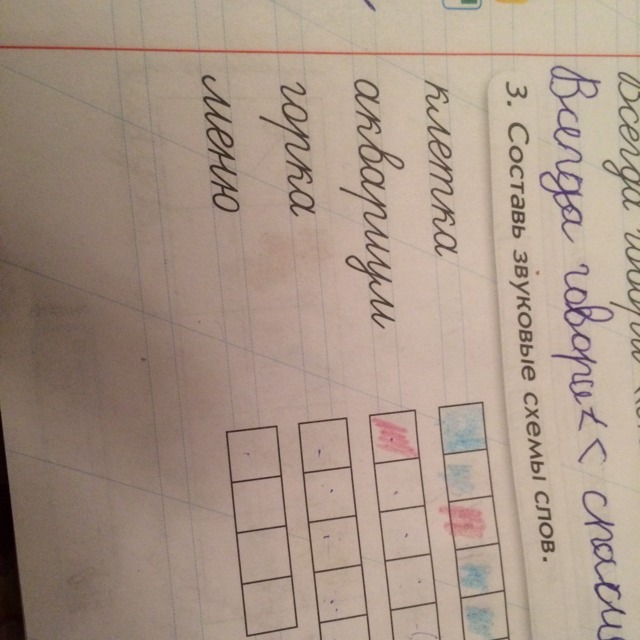 Всегда говорите спаси
3. Составь звуковые схемы слов.
клетка
аквариум
горка
меню